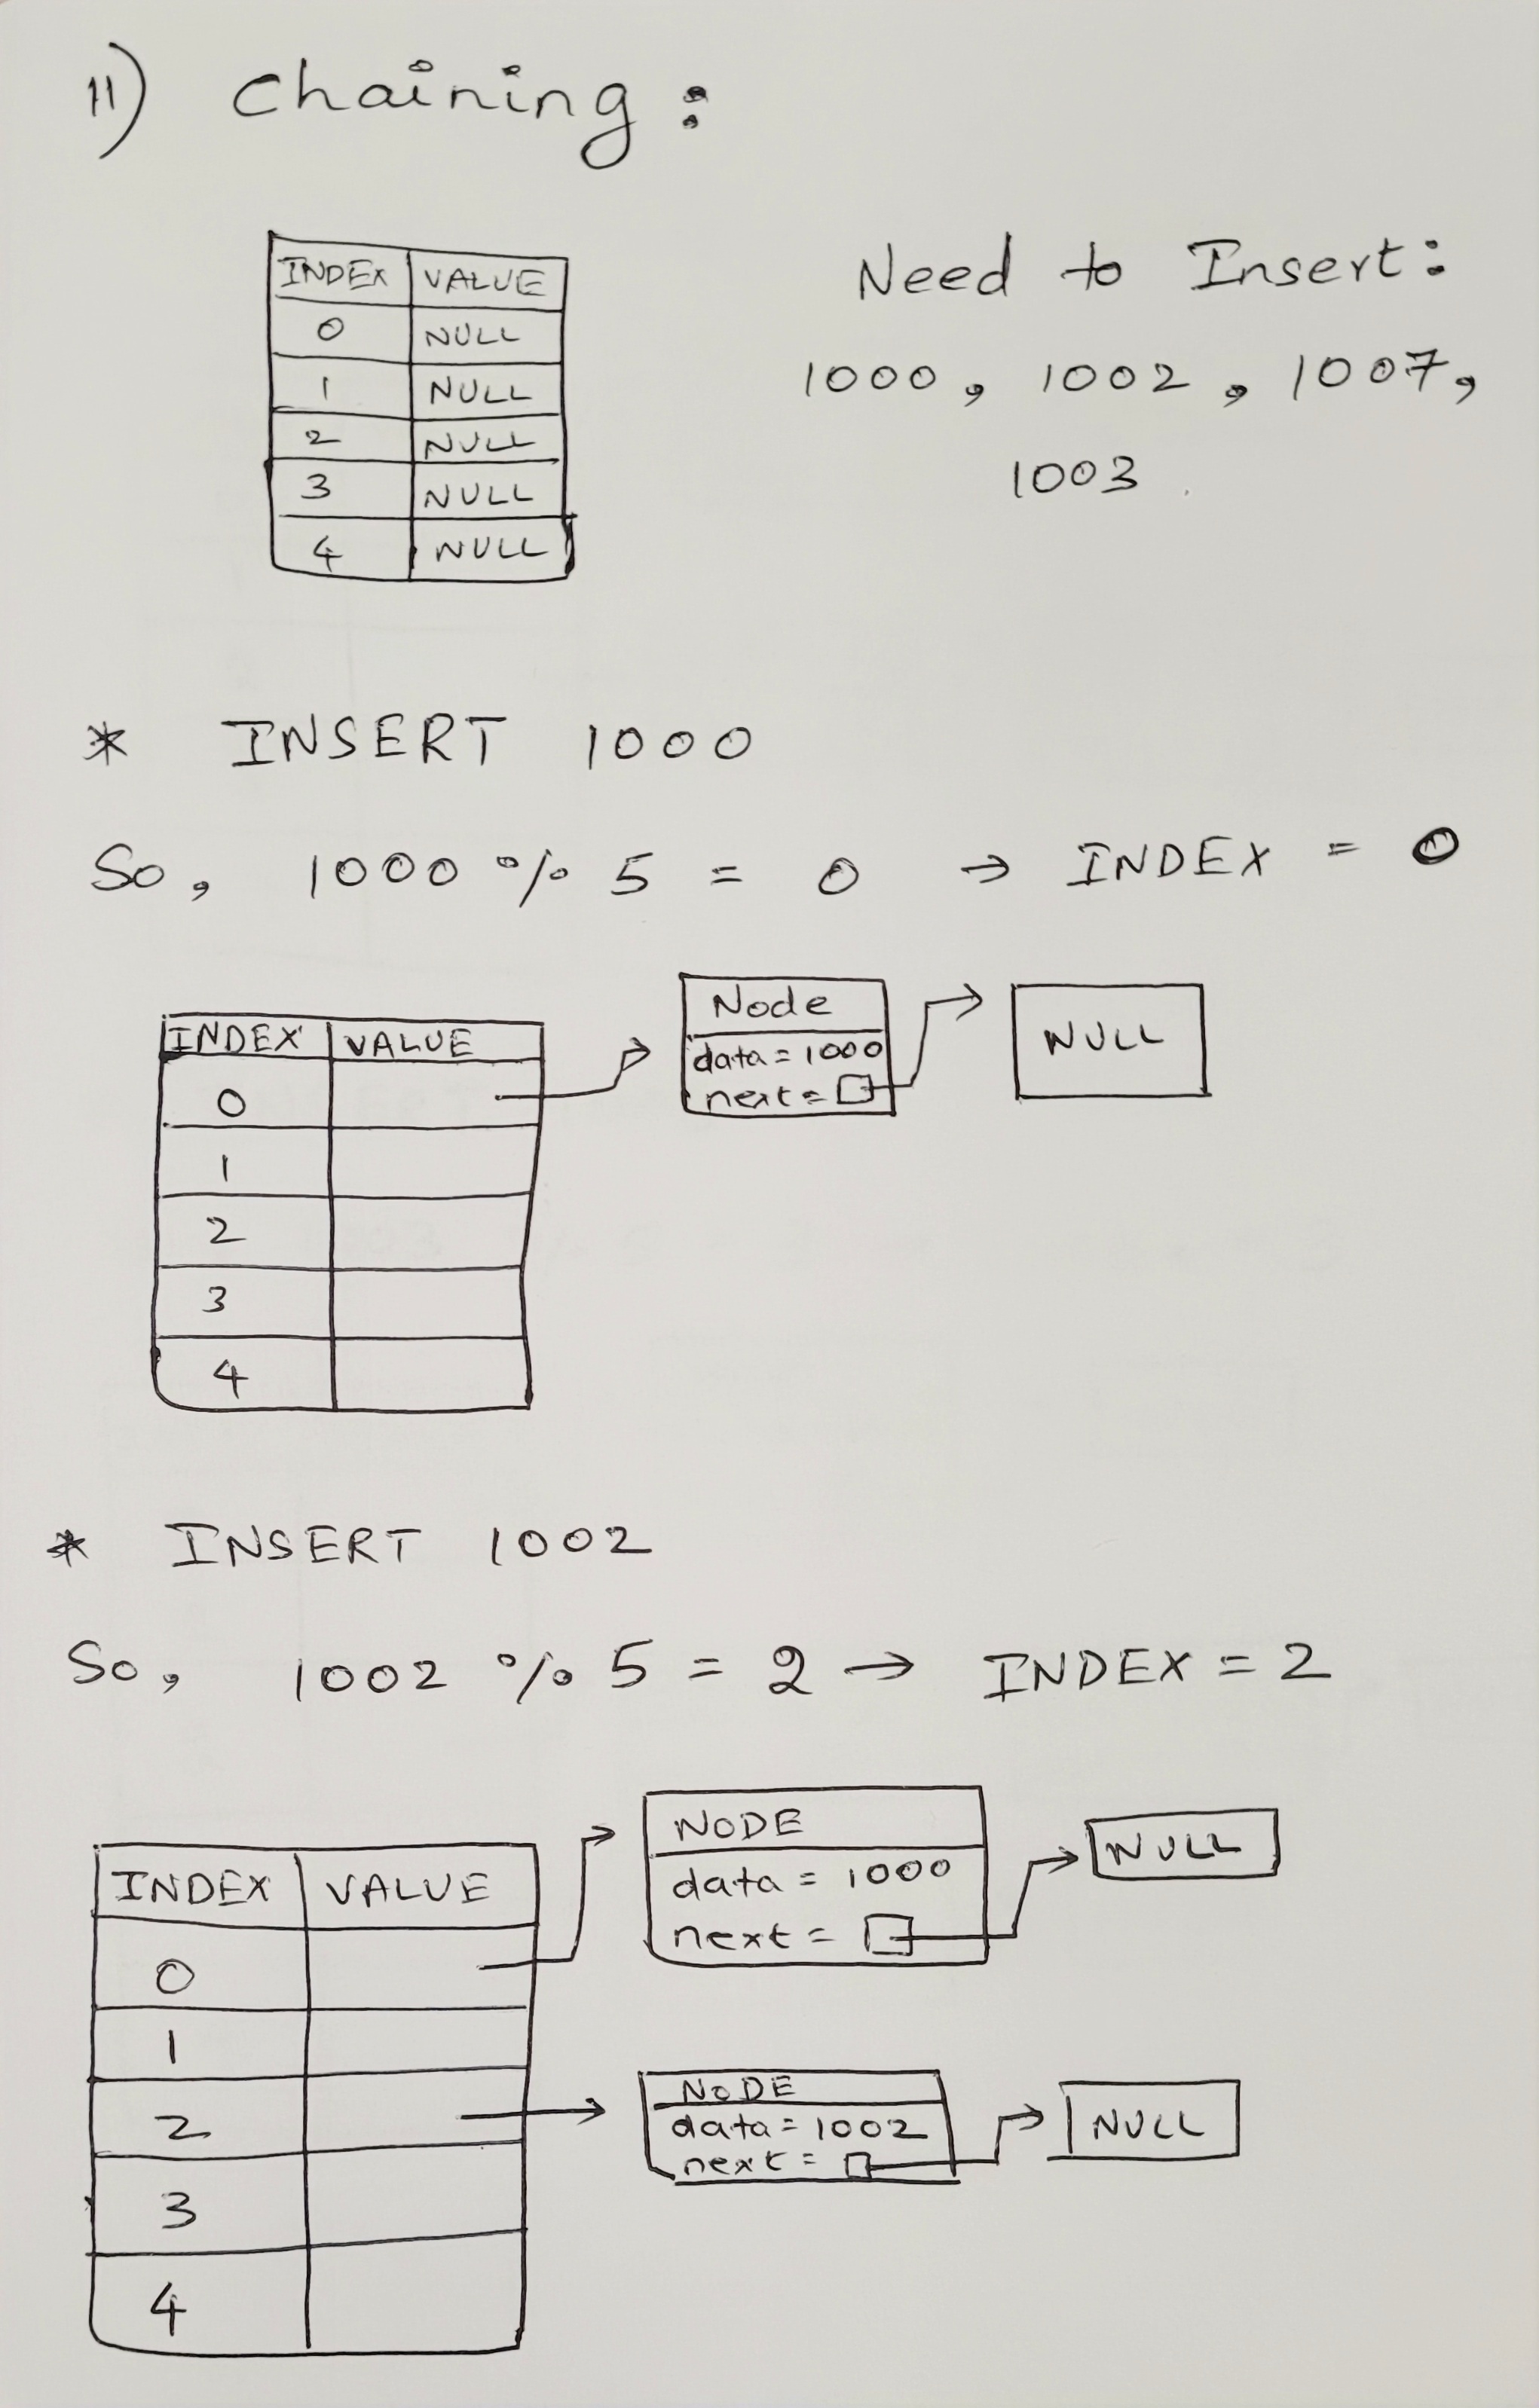 11) Chaining :
INDEX VALUE
0 NULL
1 NULL
2 NULL
3 NULL
4 NULL
Need to Insert :
1000, 1002, 1007,
1003
* INSERT 1000
So, 1000 % 5 = 0 → INDEX = 0
INDEX VALUE
0
1
2
3
4
Node
data = 1000
next =
NULL
* INSERT 1002
So, 1002 % 5 = 2 → INDEX = 2
INDEX VALUE
0
1
2
3
4
NODE
data = 1000
next =
NULL
NODE
data = 1002
next =
NULL